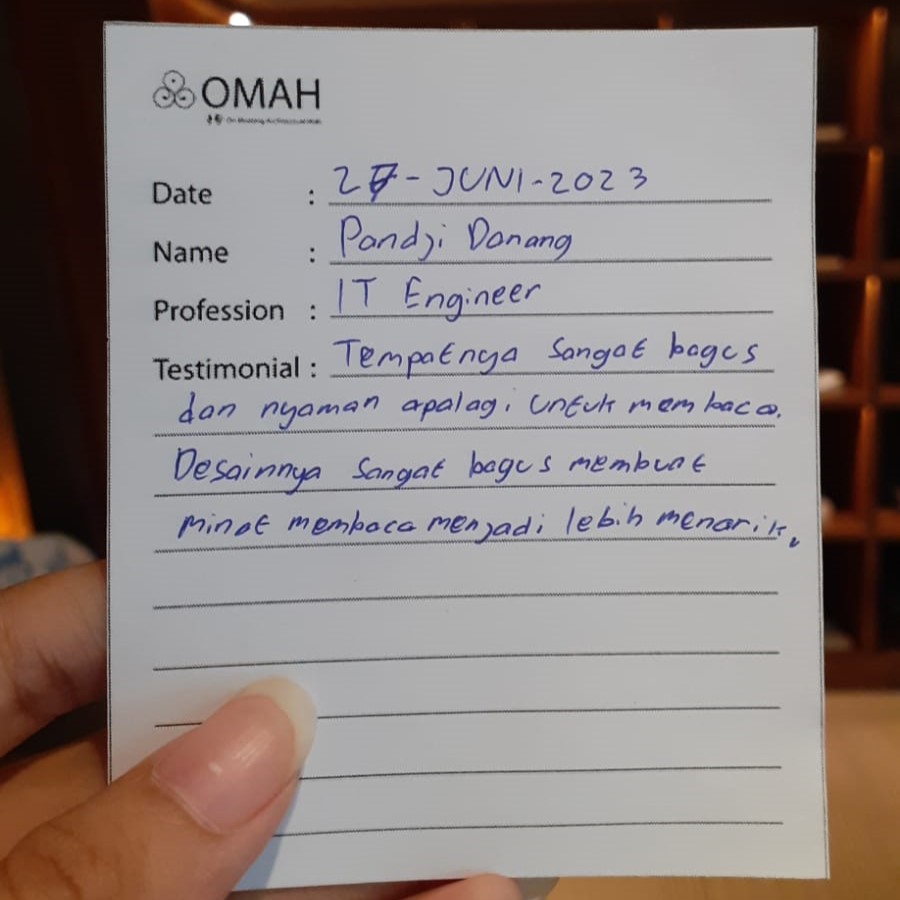 OMAH
Date : 27-JUNI-2023
Name : Pandji Danang
Profession : IT Engineer
Testimonial : Tempatnya sangat bagus
dan nyaman apalagi untuk membaca.
Desainnya sangat bagus membuat
minat membaca menjadi lebih menarik,